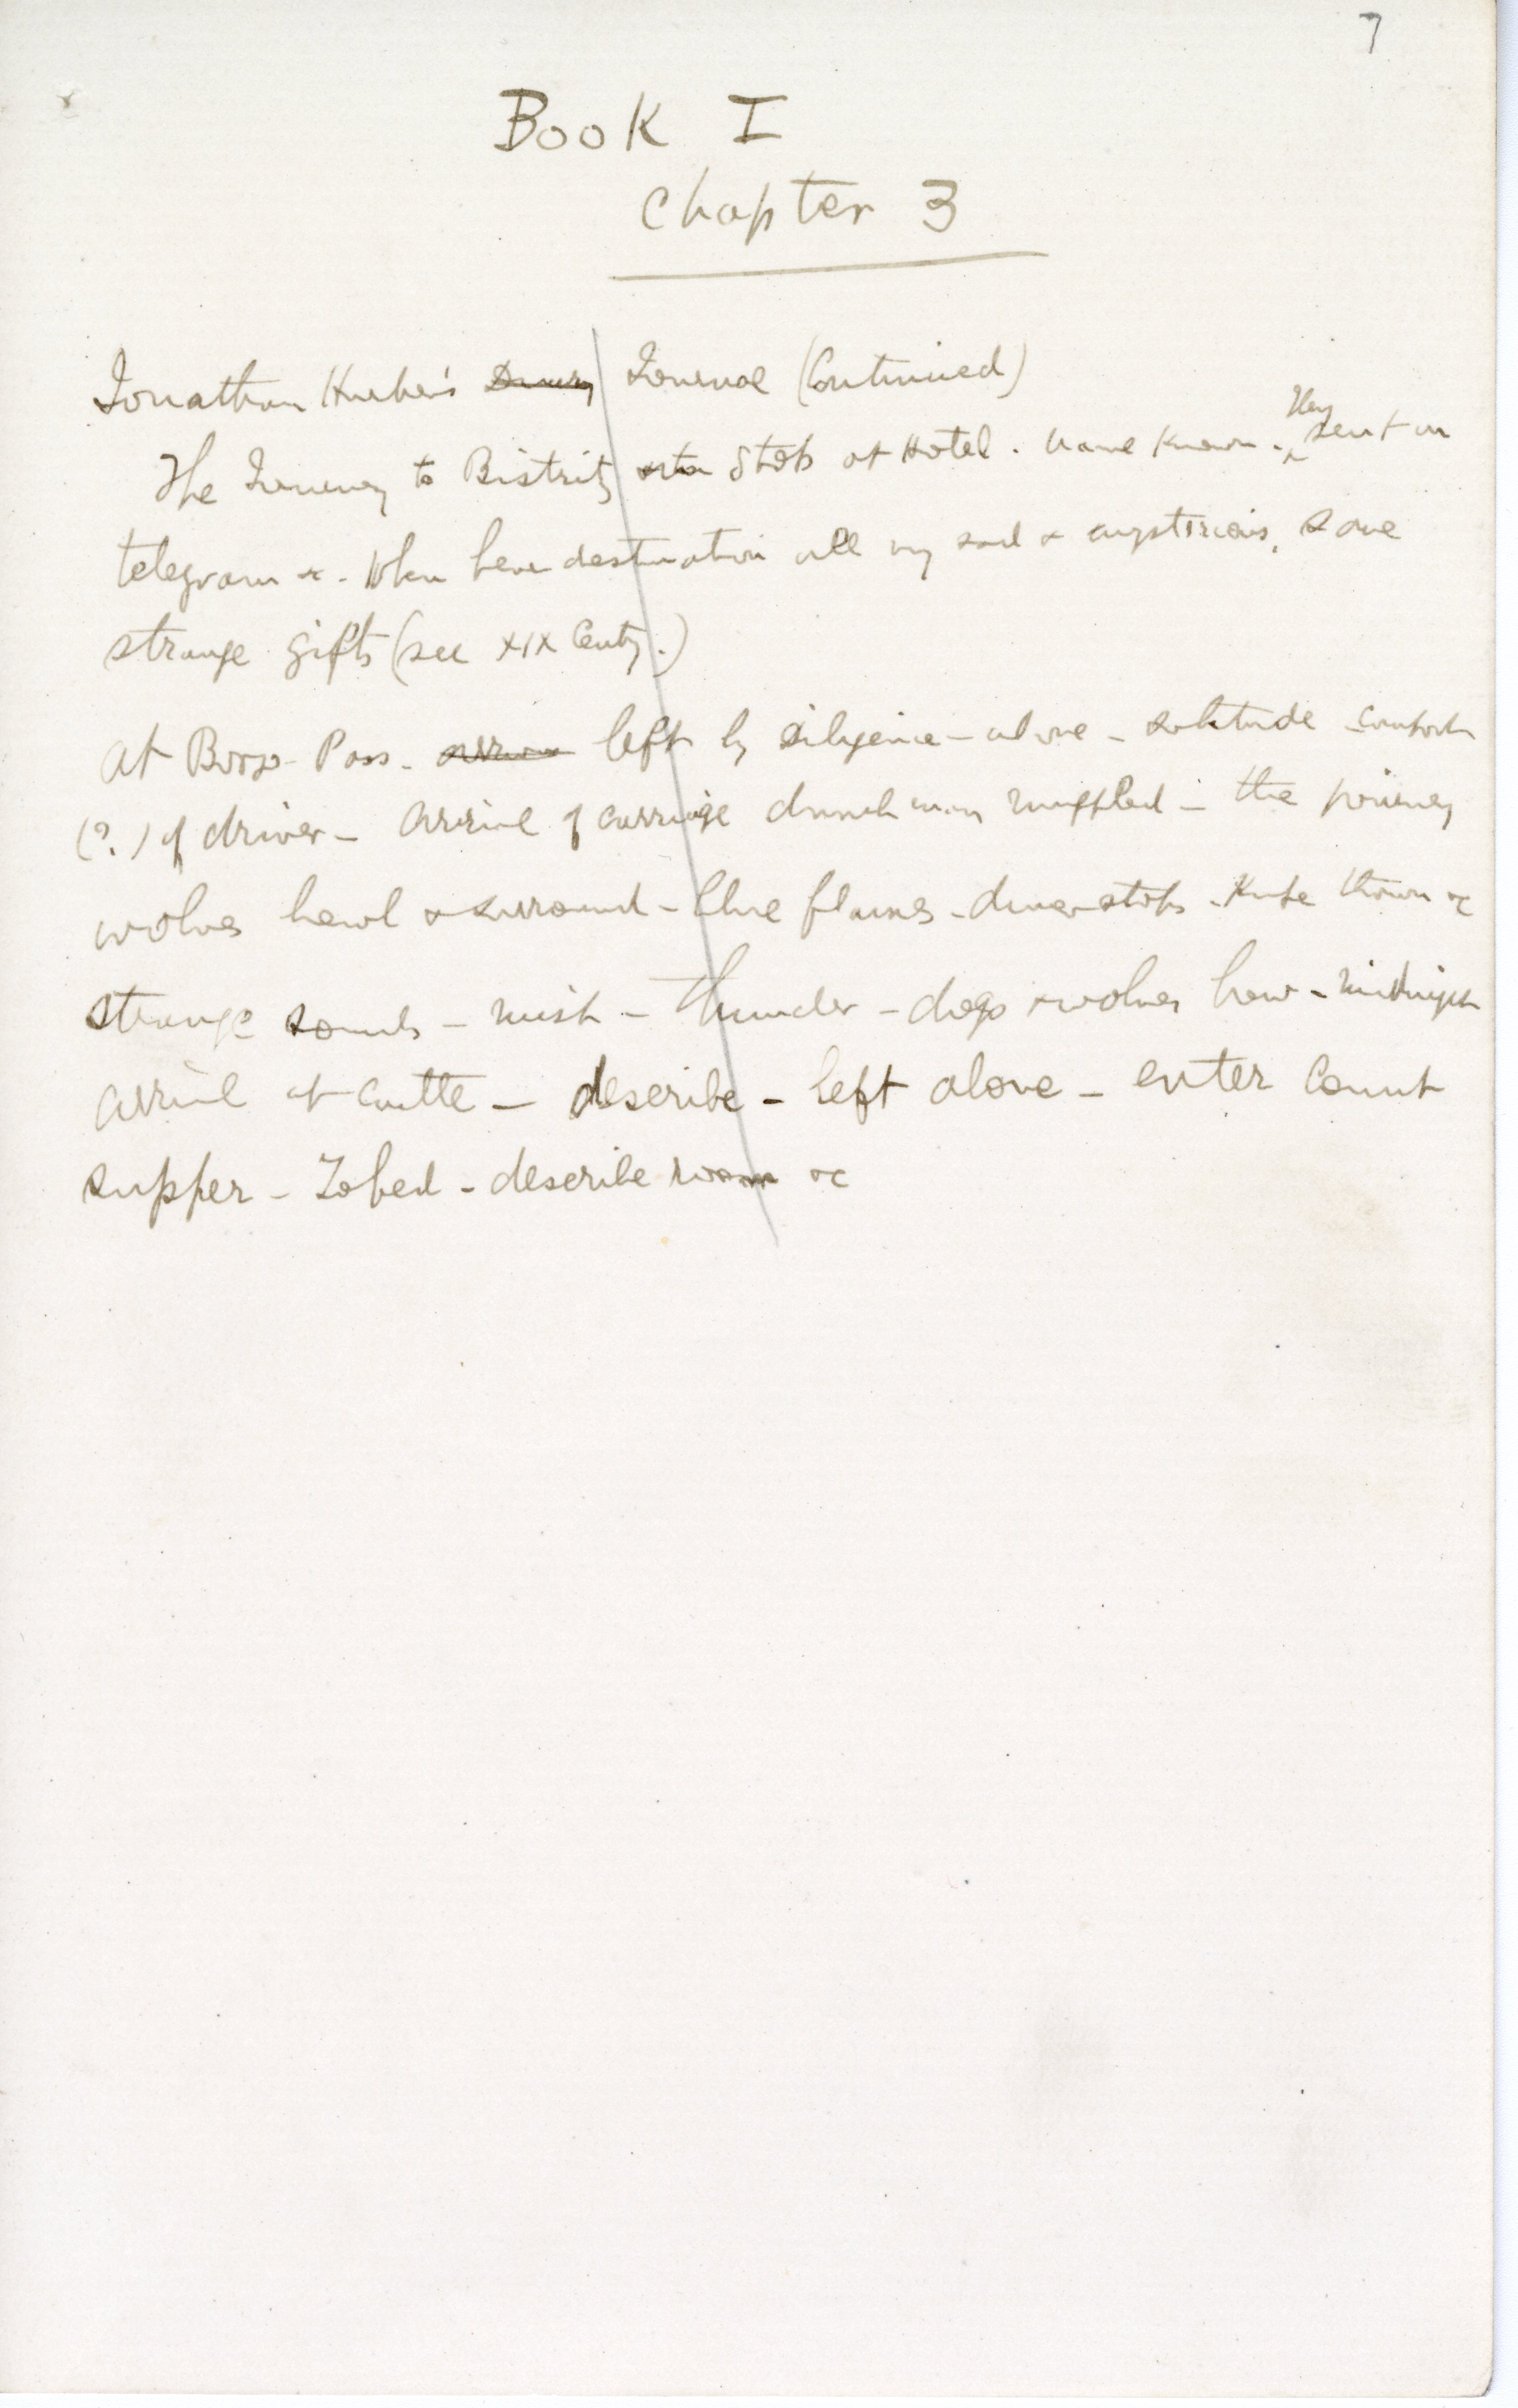 7
Book I
Chapter 3
Jonathan Harker's Diary Journal (Continued)
The Journey to Bistritz Stop at Hotel. name known. They sent on
telegram &c. When hear destination all very sad & mysterious, some
strange gifts (see XIX Centy.)
at Borgo Pass. arrive left by diligence - alone - solitude - comfort
(?) of driver - arrival of carriage driver man muffled - the journey
wolves howl & surround - blue flames - driver stops - Knife thrown &c
strange sounds - mist - thunder - dogs & wolves how - midnight
arrival at castle - describe - left alone - enter Count
supper - To bed - describe room &c